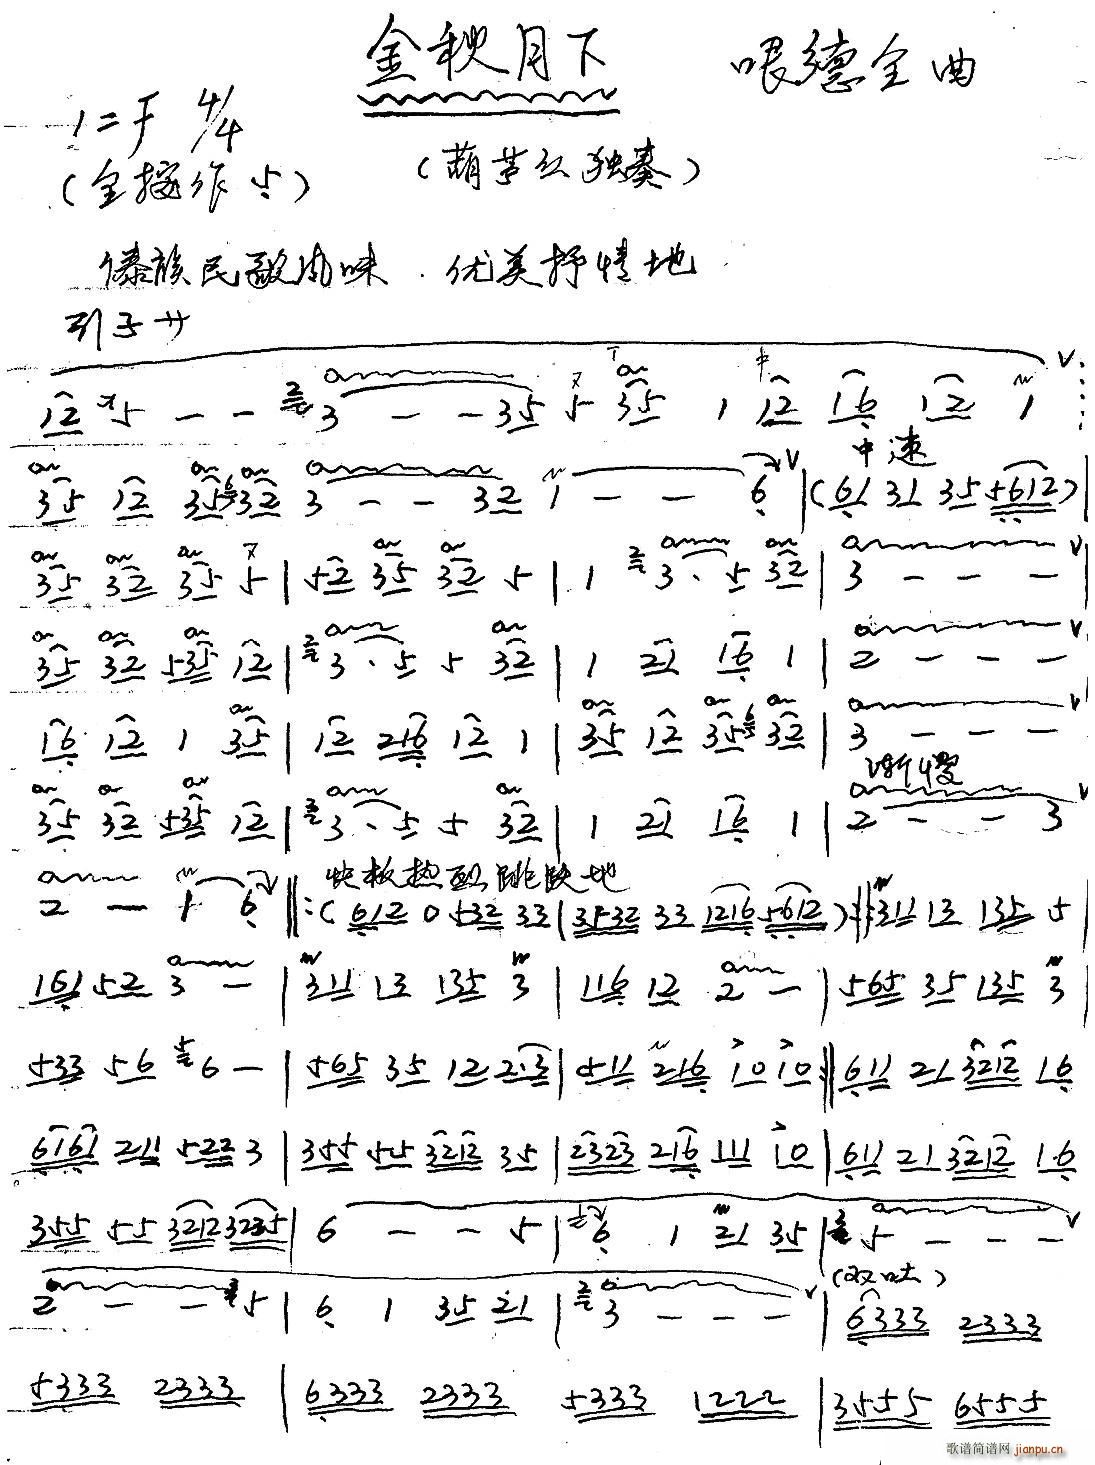 金秋月下
哏德全曲
1=F 4/4
(全按作5)
(葫芦丝独奏)
傣族民歌风味 . 优美抒情地
引子 サ
12 5 - - 3 - - 35 5 35 1 12 16 12 1
中速
35 12 35 32 3 - - 32 1 - - 6 | (61 31 35 5612) |
35 32 35 5 | 52 35 32 5 | 1 3 · 5 32 | 3 - - -
35 32 535 12 | 3 · 5 5 32 | 1 21 16 1 | 2 - - -
16 12 1 35 | 12 216 12 1 | 35 12 35 32 | 3 - - -
渐慢
35 32 535 12 | 3 · 5 5 32 | 1 21 16 1 | 2 - - 3
快板热烈跳跃地
2 - 1 6 ‖: (612 0 532 33 | 3532 33 1216 5612) :‖: 311 13 135 5
161 52 3 - | 311 13 135 3 | 116 12 2 - | 565 35 135 3
533 56 6 - | 565 35 12 23 | 511 216 10 10 :‖ 611 21 3212 16
6161 211 522 3 | 355 55 3212 35 | 2323 216 111 10 | 611 21 3212 16
355 55 3212 3235 | 6 - - 5 | 6 1 21 35 | 5 - - -
(双吐)
2 - - 5 | 6 1 35 21 | 3 - - - | 6333 2333
5333 2333 | 6333 2333 5333 1222 | 3555 6555
歌谱简谱网 jianpu.cn